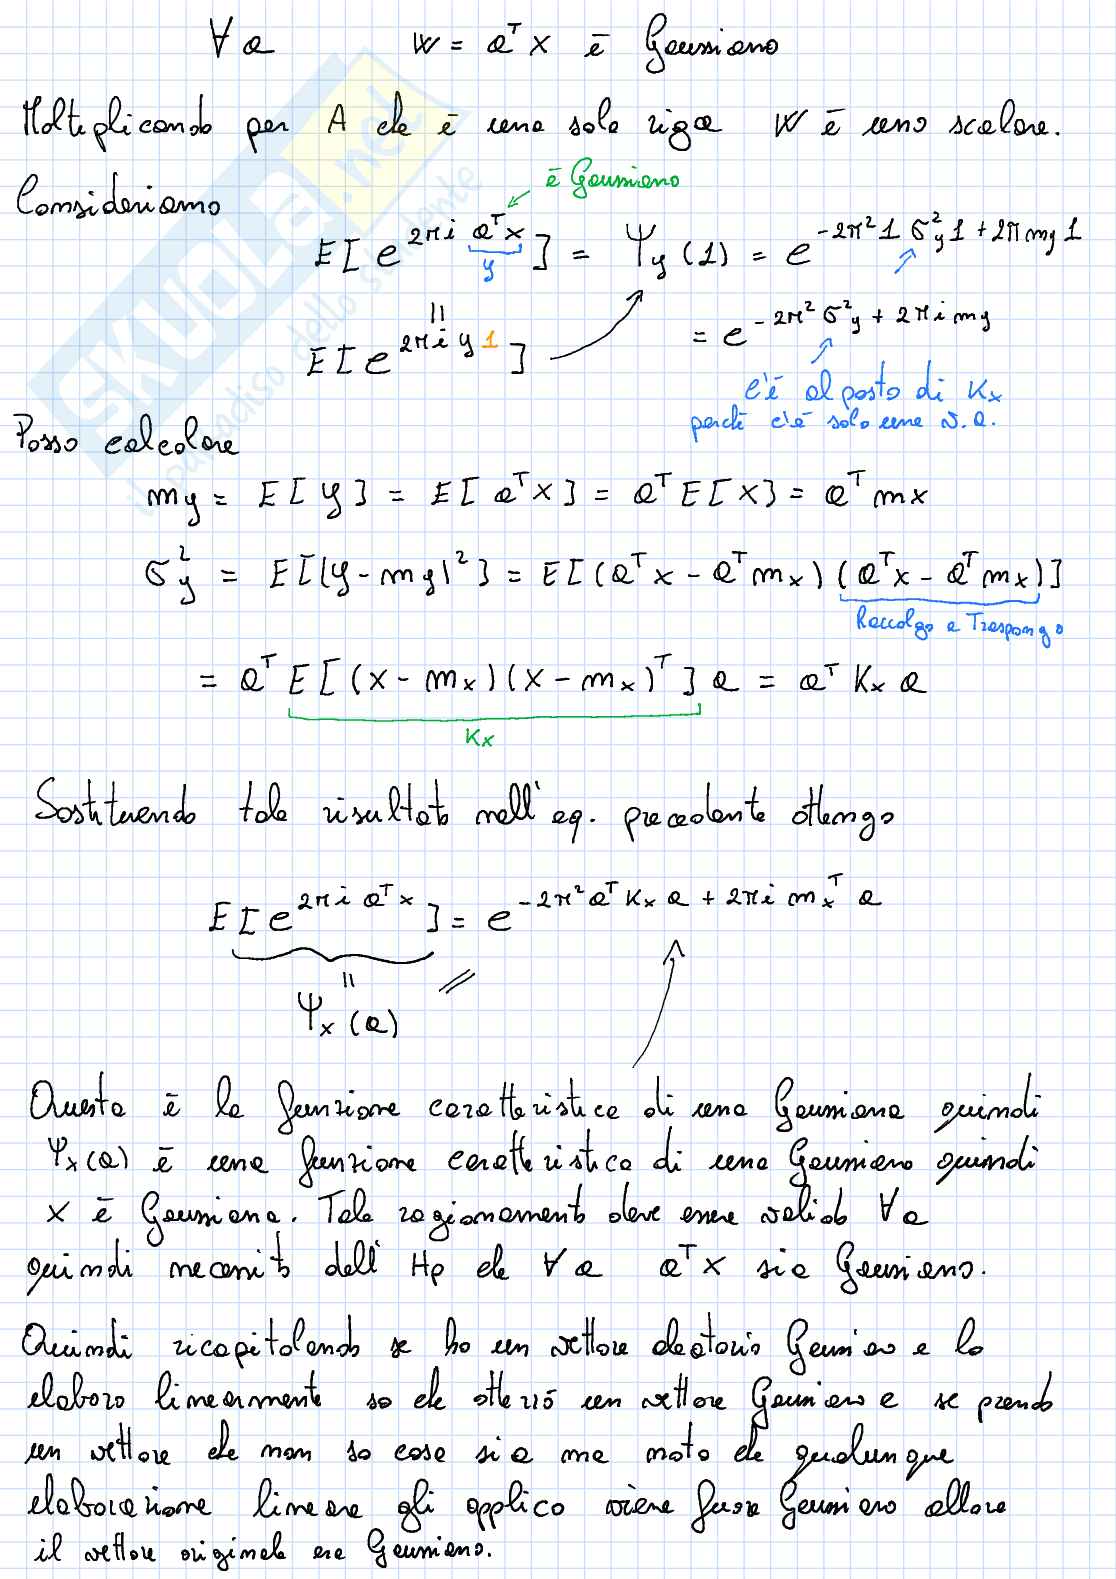 ∀ a W = a^T X è Gaussiano
Moltiplicando per A che è una sola riga W è uno scalare.
è Gaussiano
Consideriamo
E[e^{2πi a^T x}] = Ψ_y(1) = e^{-2π² 1 σ²_y 1 + 2π m_y 1}
y
||
E[e^{2πi y 1}]
= e^{-2π² σ²_y + 2πi m_y}
c'è al posto di K_x
perché c'è solo una v.a.
Posso calcolare
m_y = E[y] = E[a^T X] = a^T E[X] = a^T m_x
σ²_y = E[|y - m_y|²] = E[(a^T x - a^T m_x)(a^T x - a^T m_x)]
Raccolgo e Traspongo
= a^T E[(x - m_x)(x - m_x)^T] a = a^T K_x a
K_x
Sostituendo tale risultato nell'eq. precedente ottengo
E[e^{2πi a^T x}] = e^{-2π² a^T K_x a + 2πi m_x^T a}
||
Ψ_x(a)
Questa è la funzione caratteristica di una Gaussiana quindi
Ψ_x(a) è una funzione caratteristica di una Gaussiana quindi
X è Gaussiana. Tale ragionamento deve essere valido ∀ a
quindi necessito dell'Hp che ∀ a a^T X sia Gaussiano.
Quindi ricapitolando se ho un vettore aleatorio Gaussiano e lo
elaboro linearmente so che otterrò un vettore Gaussiano e se prendo
un vettore che non so cosa sia ma noto che qualunque
elaborazione lineare gli applico viene fuori Gaussiano allora
il vettore originale era Gaussiano.
SKUOLA.net
il paradiso dello studente